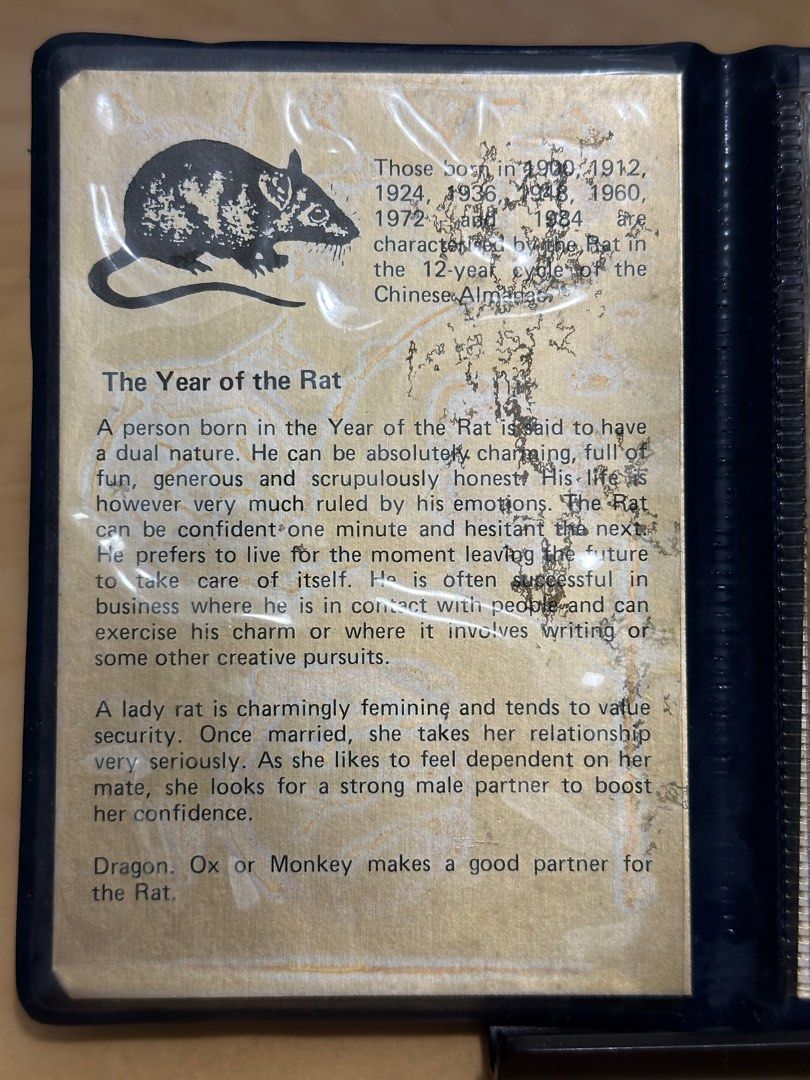 Those born in 1900, 1912,
1924, 1936, 1948, 1960,
1972 and 1984 are
characterised by the Rat in
the 12-year cycle of the
Chinese Almanac.
The Year of the Rat
A person born in the Year of the Rat is said to have
a dual nature. He can be absolutely charming, full of
fun, generous and scrupulously honest. His life is
however very much ruled by his emotions. The Rat
can be confident one minute and hesitant the next.
He prefers to live for the moment leaving the future
to take care of itself. He is often successful in
business where he is in contact with people and can
exercise his charm or where it involves writing or
some other creative pursuits.
A lady rat is charmingly feminine and tends to value
security. Once married, she takes her relationship
very seriously. As she likes to feel dependent on her
mate, she looks for a strong male partner to boost
her confidence.
Dragon. Ox or Monkey makes a good partner for
the Rat.